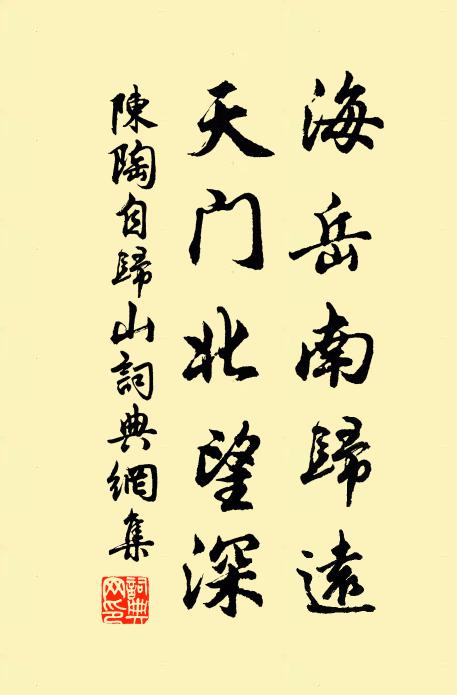 海岳南歸遠
天门北望深
陳陶自歸山詞典網集
詞典网印